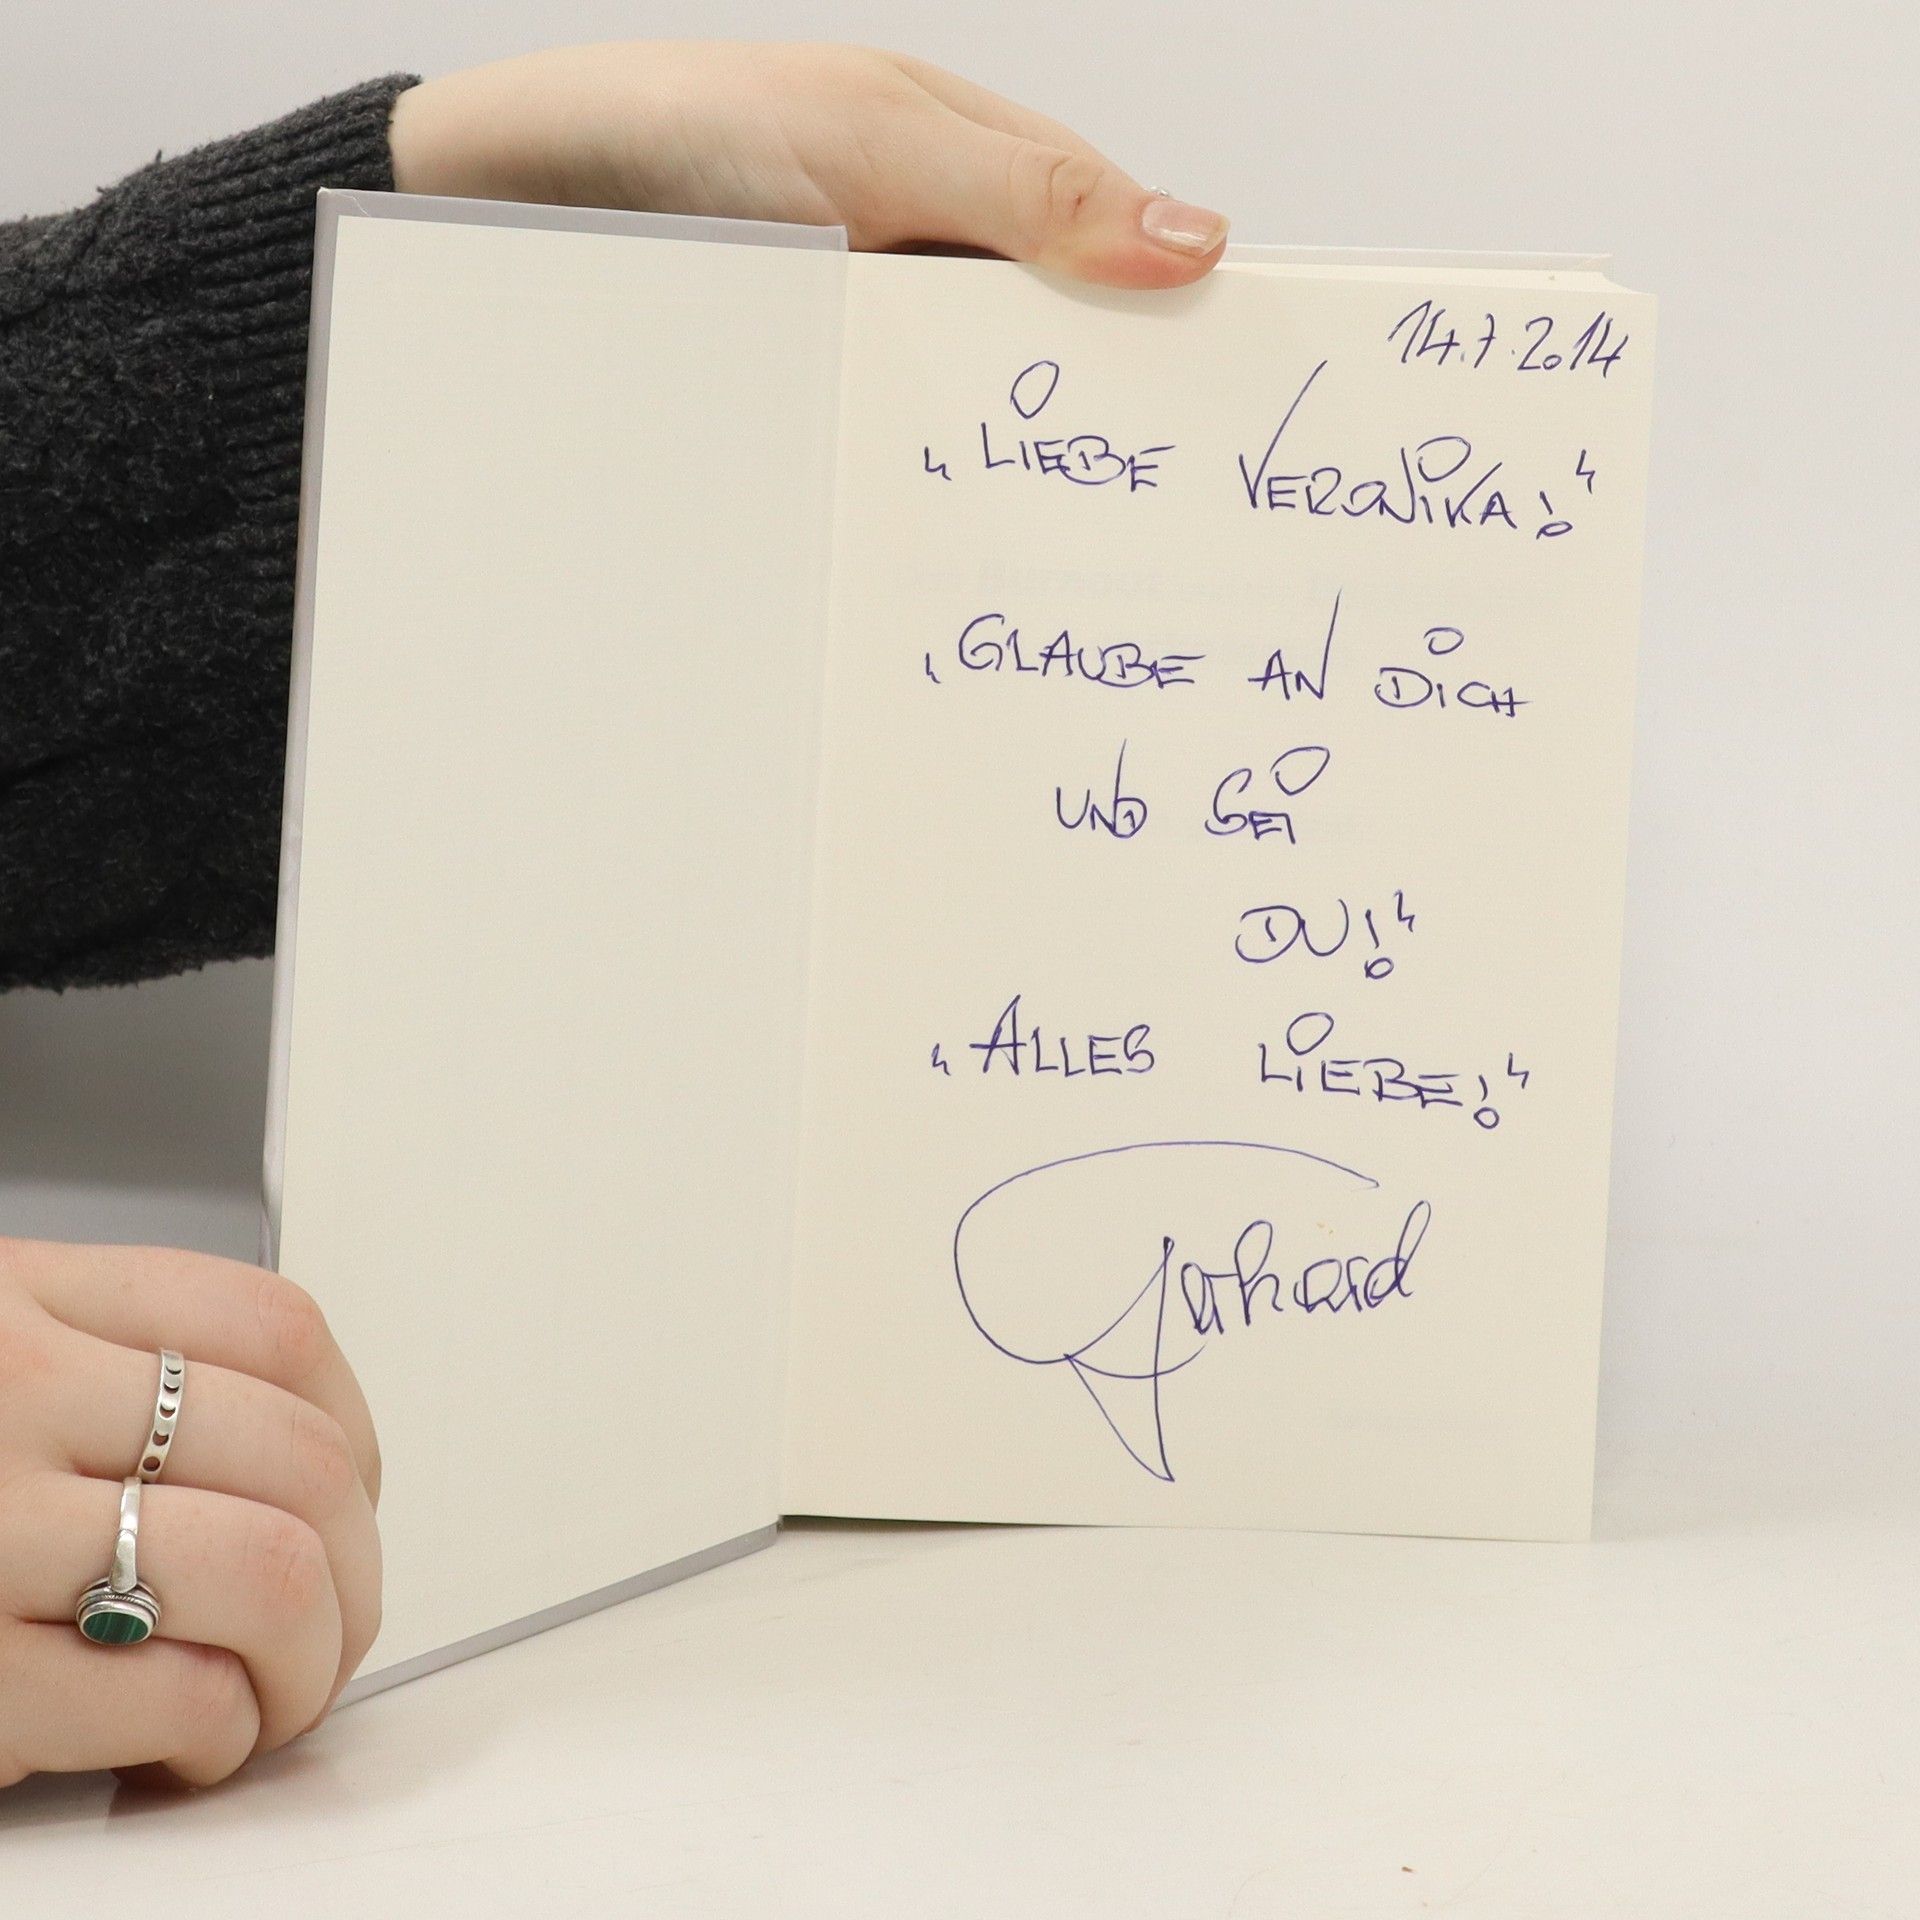 14.7.2014
„LIEBE VERONIKA!“
„GLAUBE AN DICH
UND SEI
DU!“
„ALLES LIEBE!“
Gerhard